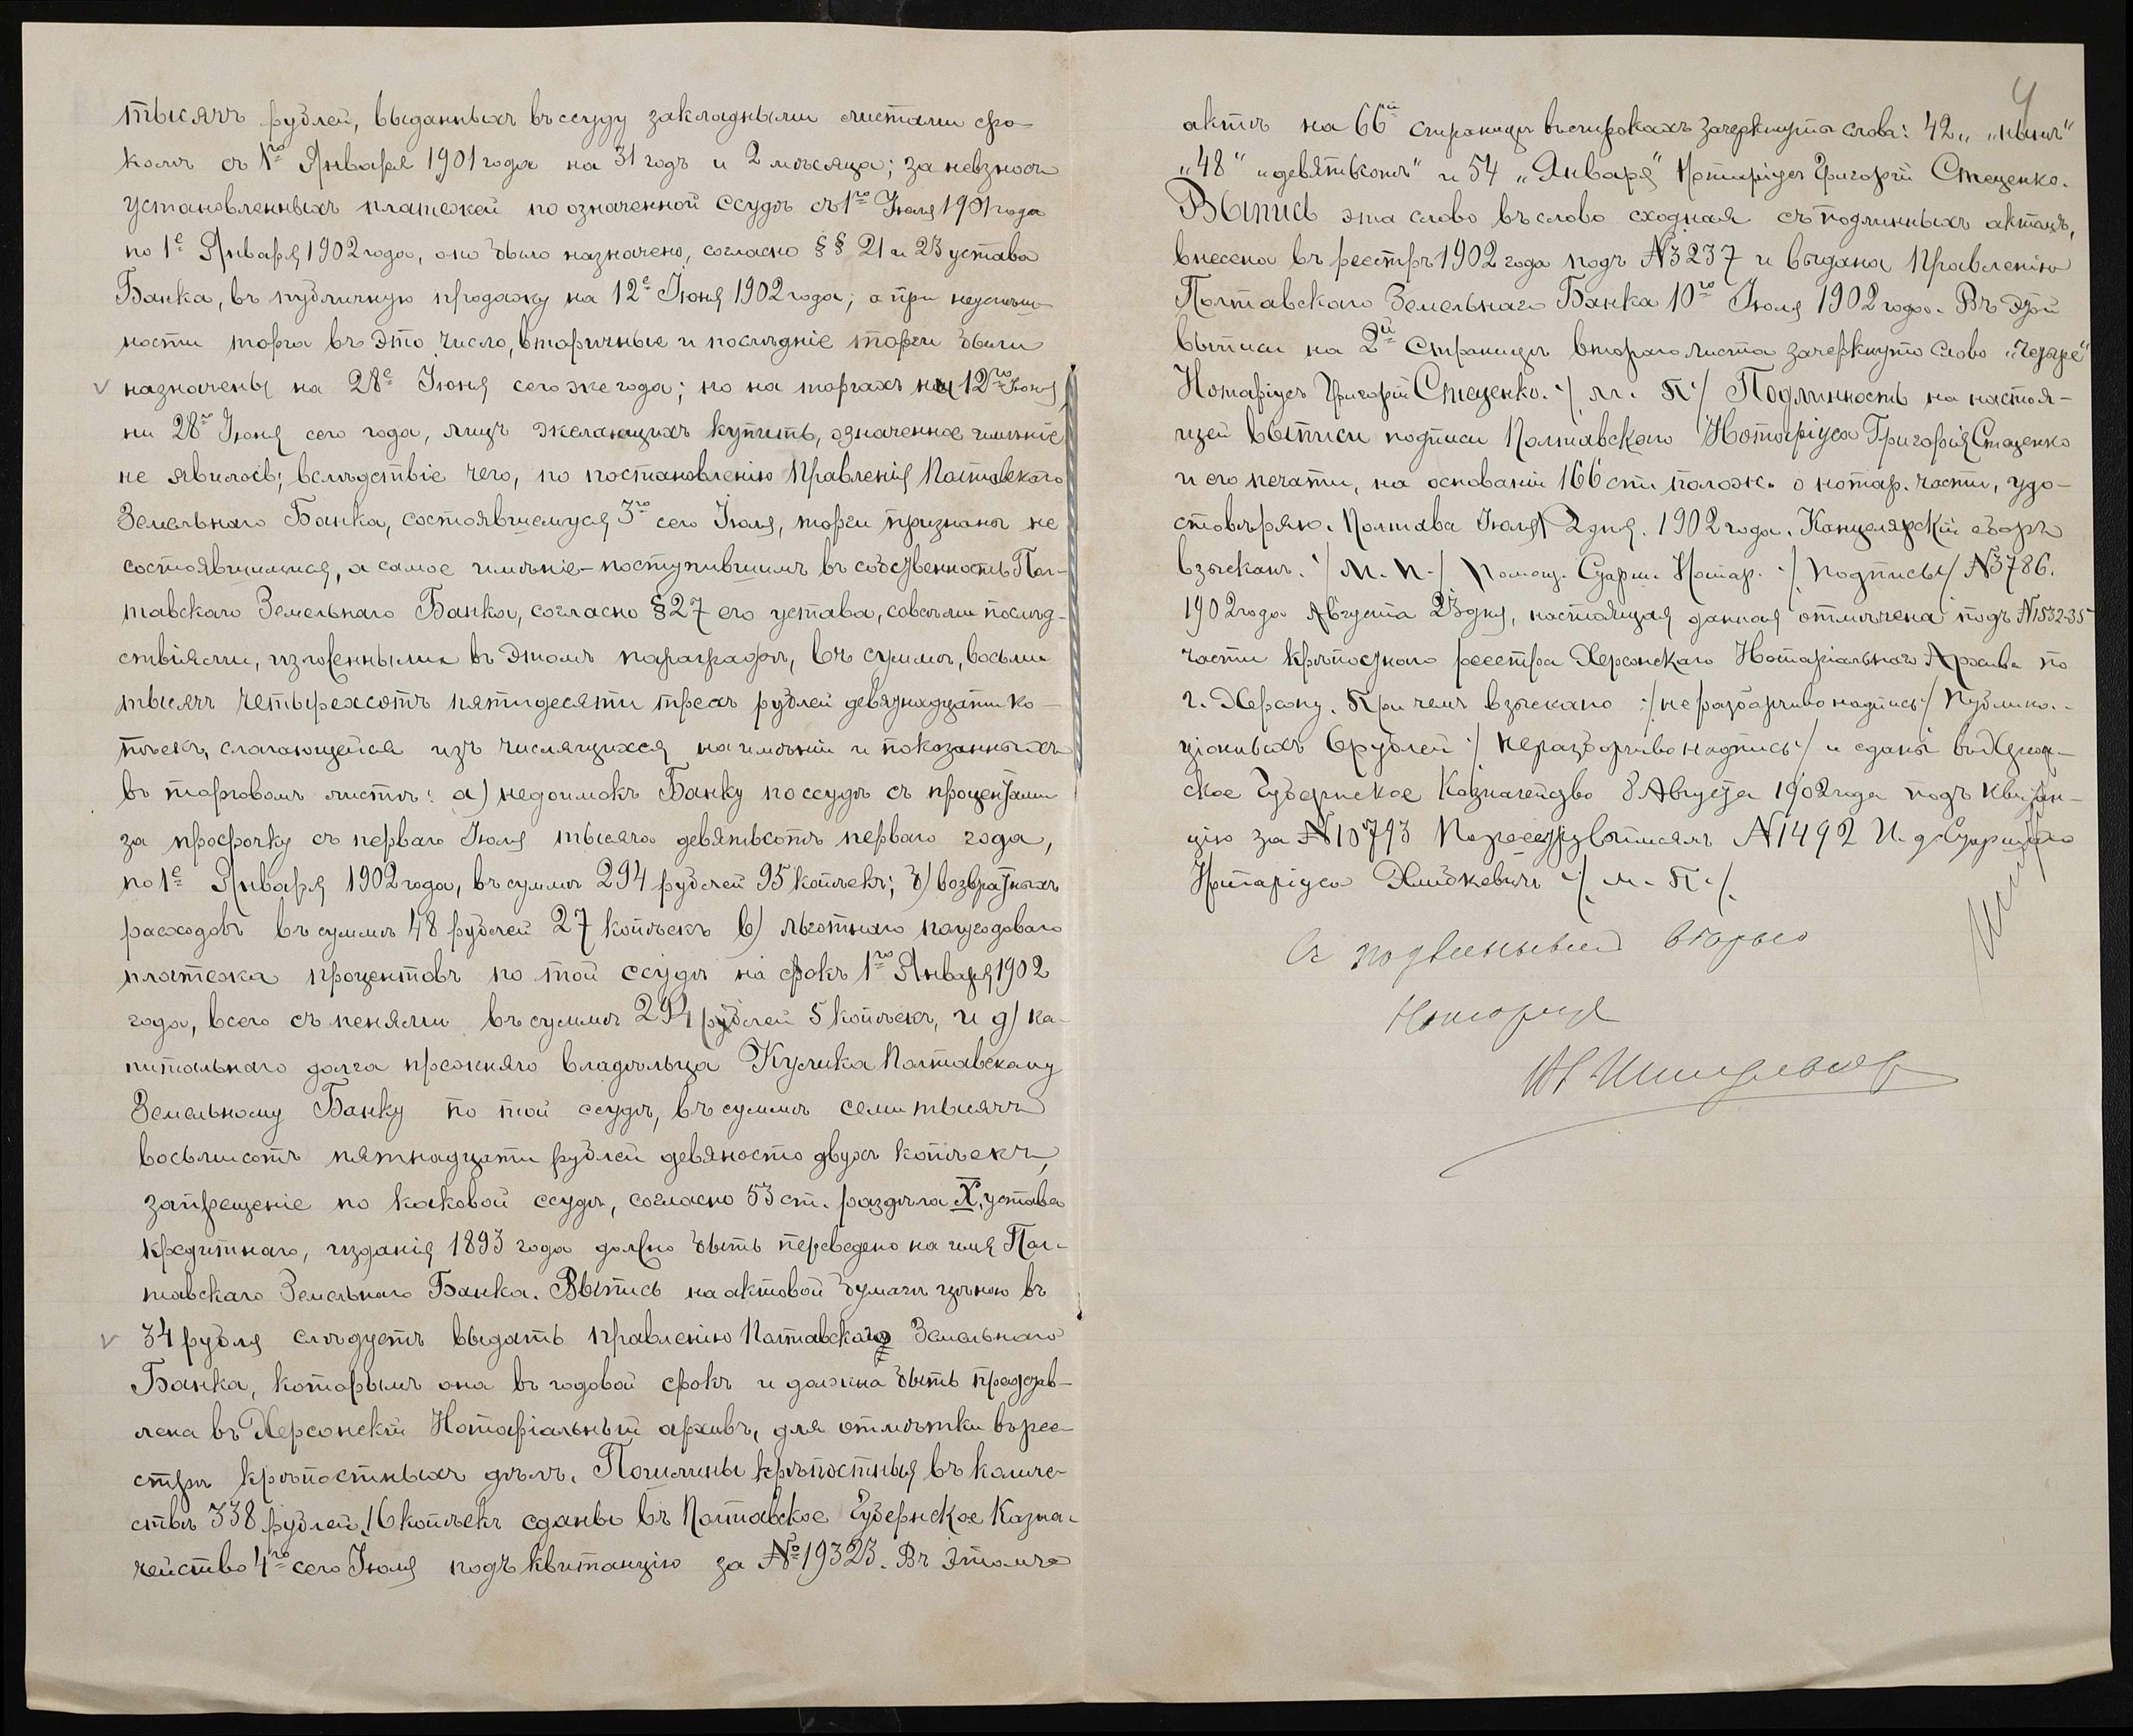 тысячъ рублей, выданныхъ въ ссуду закладными листами сро-
комъ съ 1го Января 1901 года на 31 годъ и 2 мѣсяца; за невзносъ
установленныхъ платежей по означенной ссудѣ съ 1го Іюля 1901 года
по 1е Января 1902 года, оно было назначено, согласно §§ 21 и 23 устава
Банка, въ публичную продажу на 12е Іюня 1902 года; а при неуспѣш-
ности торга въ это число, вторичные и послѣдніе торги были
назначены на 28е Іюня сего же года; но на торгахъ ни 12го Іюня,
ни 28го Іюня сего года, лицъ желающихъ купить, означенное имѣніе
не явилось; вслѣдствіе чего, по постановленію Правленія Полтавскаго
Земельнаго Банка, состоявшемуся 3го сего Іюля, торги признаны не
состоявшимися, а самое имѣніе - поступившимъ въ собственность Пол-
тавскаго Земельнаго Банка, согласно §27 его устава, со всѣми послѣд-
ствіями, изложенными въ этомъ параграфѣ, въ суммѣ, восьми
тысячъ четырехсотъ пятидесяти трехъ рублей девятнадцати ко-
пѣекъ, слагающейся изъ числящихся на имѣніи и показанныхъ
въ торговомъ листѣ: а) недоимокъ Банку по ссудѣ съ процентами
за просрочку съ перваго Іюля тысяча девятьсотъ перваго года,
по 1е Января 1902 года, въ суммѣ 294 рублей 95 копѣекъ; б) возвратныхъ
расходовъ въ суммѣ 48 рублей 27 копѣекъ в) льготнаго полугодоваго
платежа процентовъ по той ссудѣ на срокъ 1го Января 1902
года, всего съ пенями въ суммѣ 294 рублей 5 копѣекъ, и д) ка-
питальнаго долга прежняго владѣльца Кулика Полтавскому
Земельному Банку по той ссудѣ, въ суммѣ семи тысячъ
восьмисотъ пятнадцати рублей девяносто двухъ копѣекъ,
запрещеніе по каковой ссудѣ, согласно 53 ст. раздѣла X, устава
кредитнаго, изданія 1893 года должно быть переведено на имя Пол-
тавскаго Земельнаго Банка. Выпись на актовой бумагѣ цѣною въ
34 рубля слѣдуетъ выдать правленію Полтавскаго Земельнаго
Банка, которымъ она въ годовой срокъ и должна быть представ-
лена въ Херсонскій Нотаріальный архивъ, для отмѣтки въ рее-
стрѣ крѣпостныхъ дѣлъ. Пошлины крѣпостныя въ количе-
ствѣ 338 рублей 16 копѣекъ сданы въ Полтавское Губернское Казна-
чейство 4го сего Іюля подъ квитанцію за №19323. Въ этомъ
4
актѣ на 66й страницѣ въ строкахъ зачеркнуты слова: 42 „
„48“ „девятьсотъ“ и 54 „Января“ Нотаріусъ Григорій Стеценко.
Выпись эта слово въ слово сходная съ подлиннымъ актомъ,
внесена въ реестръ 1902 года подъ №3237 и выдана Правленію
Полтавскаго Земельнаго Банка 10го Іюля 1902 года. Въ этой
выписи на 2й страницѣ втораго листа зачеркнуто слово
Нотаріусъ Григорій Стеценко. /м. П/ Подлинность на настоя-
щей выписи подписи Полтавскаго Нотаріуса Григорія Стеценко
и его печати, на основаніи 166 ст. полож. о нотар. части, удо-
стовѣряю. Полтава Іюля 2 дня. 1902 года. Канцелярскій сборъ
взысканъ. /М. П./ Помощ. Старш. Нотар. /Подпись/ №3786.
1902 года Августа 23 дня, настоящая данная отмѣчена подъ №1532-35
части крѣпостного реестра Херсонскаго Нотаріальнаго Архива по
г. Херсону. При чемъ взыскано /неразборчиво надпись/ Публика-
ціонныхъ 6 рублей /неразборчиво надпись/ и сданы въ Херсон-
ское Губернское Казначейство 8 Августа 1902 года подъ квитан-
цію за №10793 По реестру выписямъ №1492 И. д. Старшаго
Нотаріуса /м. П./.
Съ подлиннымъ вѣрно
Нотаріусъ